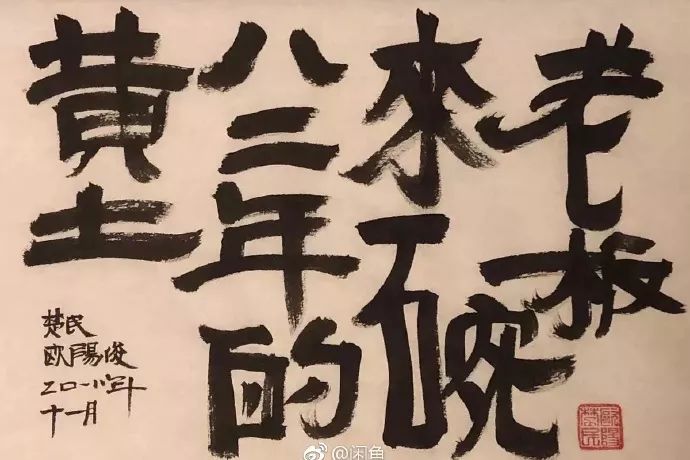 老板
來碗
八三年的
黄土
楚民
欧陽俊
二〇一八年
十一月
@闲鱼